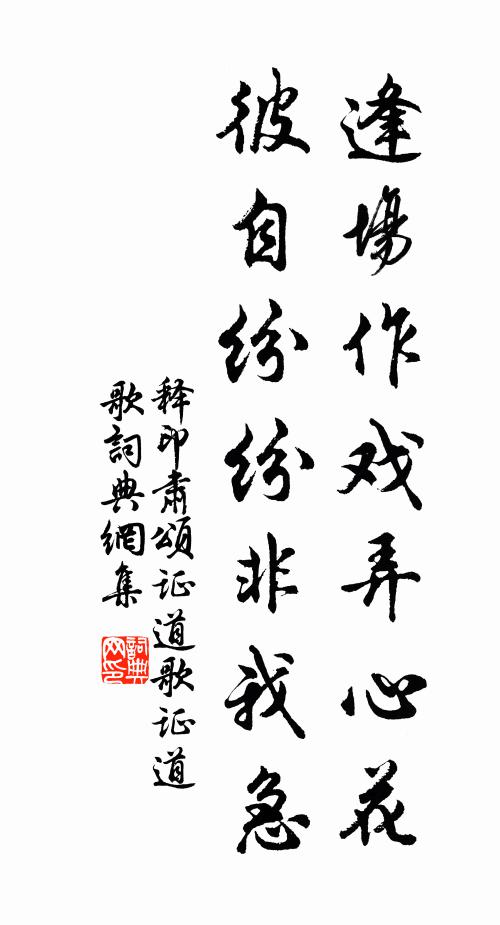 逢場作戏弄心花
彼自纷纷非我急
释印肃颂证道歌证道
歌詞典網集
詞典网印